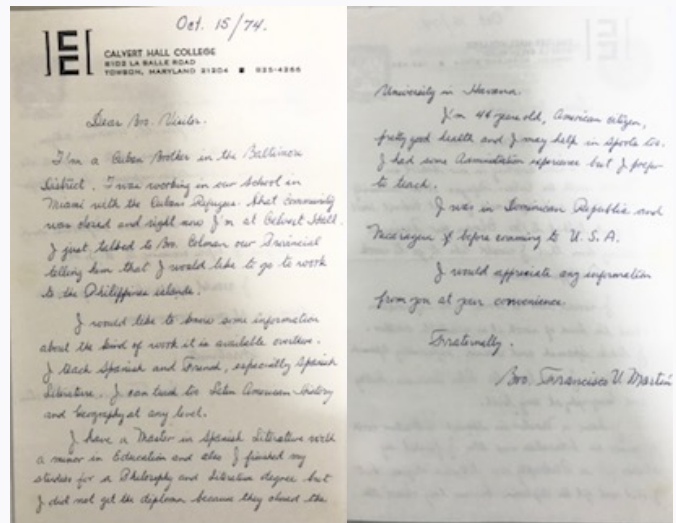 Oct. 15/74.
CALVERT HALL COLLEGE
8102 LA SALLE ROAD
TOWSON, MARYLAND 21204 ■ 825-4266
Dear Bro. Visitor.
I'm a Cuban Brother in the Baltimore
District. I was working in our School in
Miami with the Cuban Refugees. that community
was closed and right now I'm at Calvert Hall.
I just talked to Bro. Colman our Provincial
telling him that I would like to go to work
to the Philippine islands.
I would like to know some information
about the kind of work it is available
I teach Spanish and French, especially Spanish
Literature. I can teach too Latin American History
and Geography at any level.
I have a Master in Spanish Literature with
a minor in Education and also I finished my
studies for a Philosophy and Literature degree but
I did not get the diploma because they closed the
University in Havana.
I'm years old, American citizen,
pretty good health and I may help in sports too.
I had some Administration experience but I prefer
to teach.
I was in Dominican Republic and
Nicaragua before coming to U.S.A.
I would appreciate any information
from you at your convenience.
Fraternally.
Bro. Francisco U. Martín